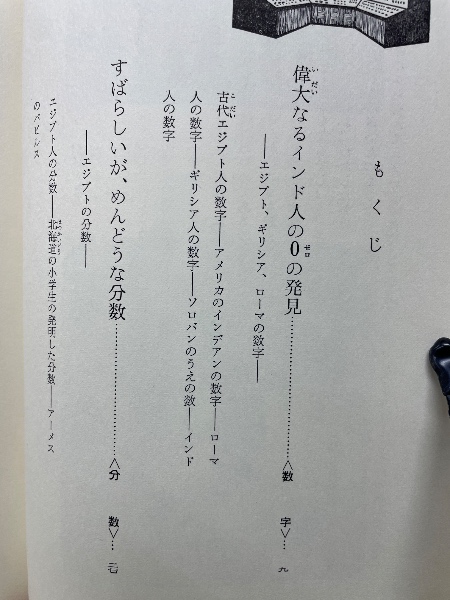 もくじ
偉大なるインド人の0の発見…………………〈数字〉…九
――エジプト、ギリシア、ローマの数字――
古代エジプト人の数字――アメリカのインデアンの数字――ローマ
人の数字――ギリシア人の数字――ソロバンのうえの数――インド
人の数字
すばらしいが、めんどうな分数…………………〈分数〉…二〇
――エジプトの分数――
エジプト人の分数――北海道の小学生の発明した分数――アーメス
のパピルス